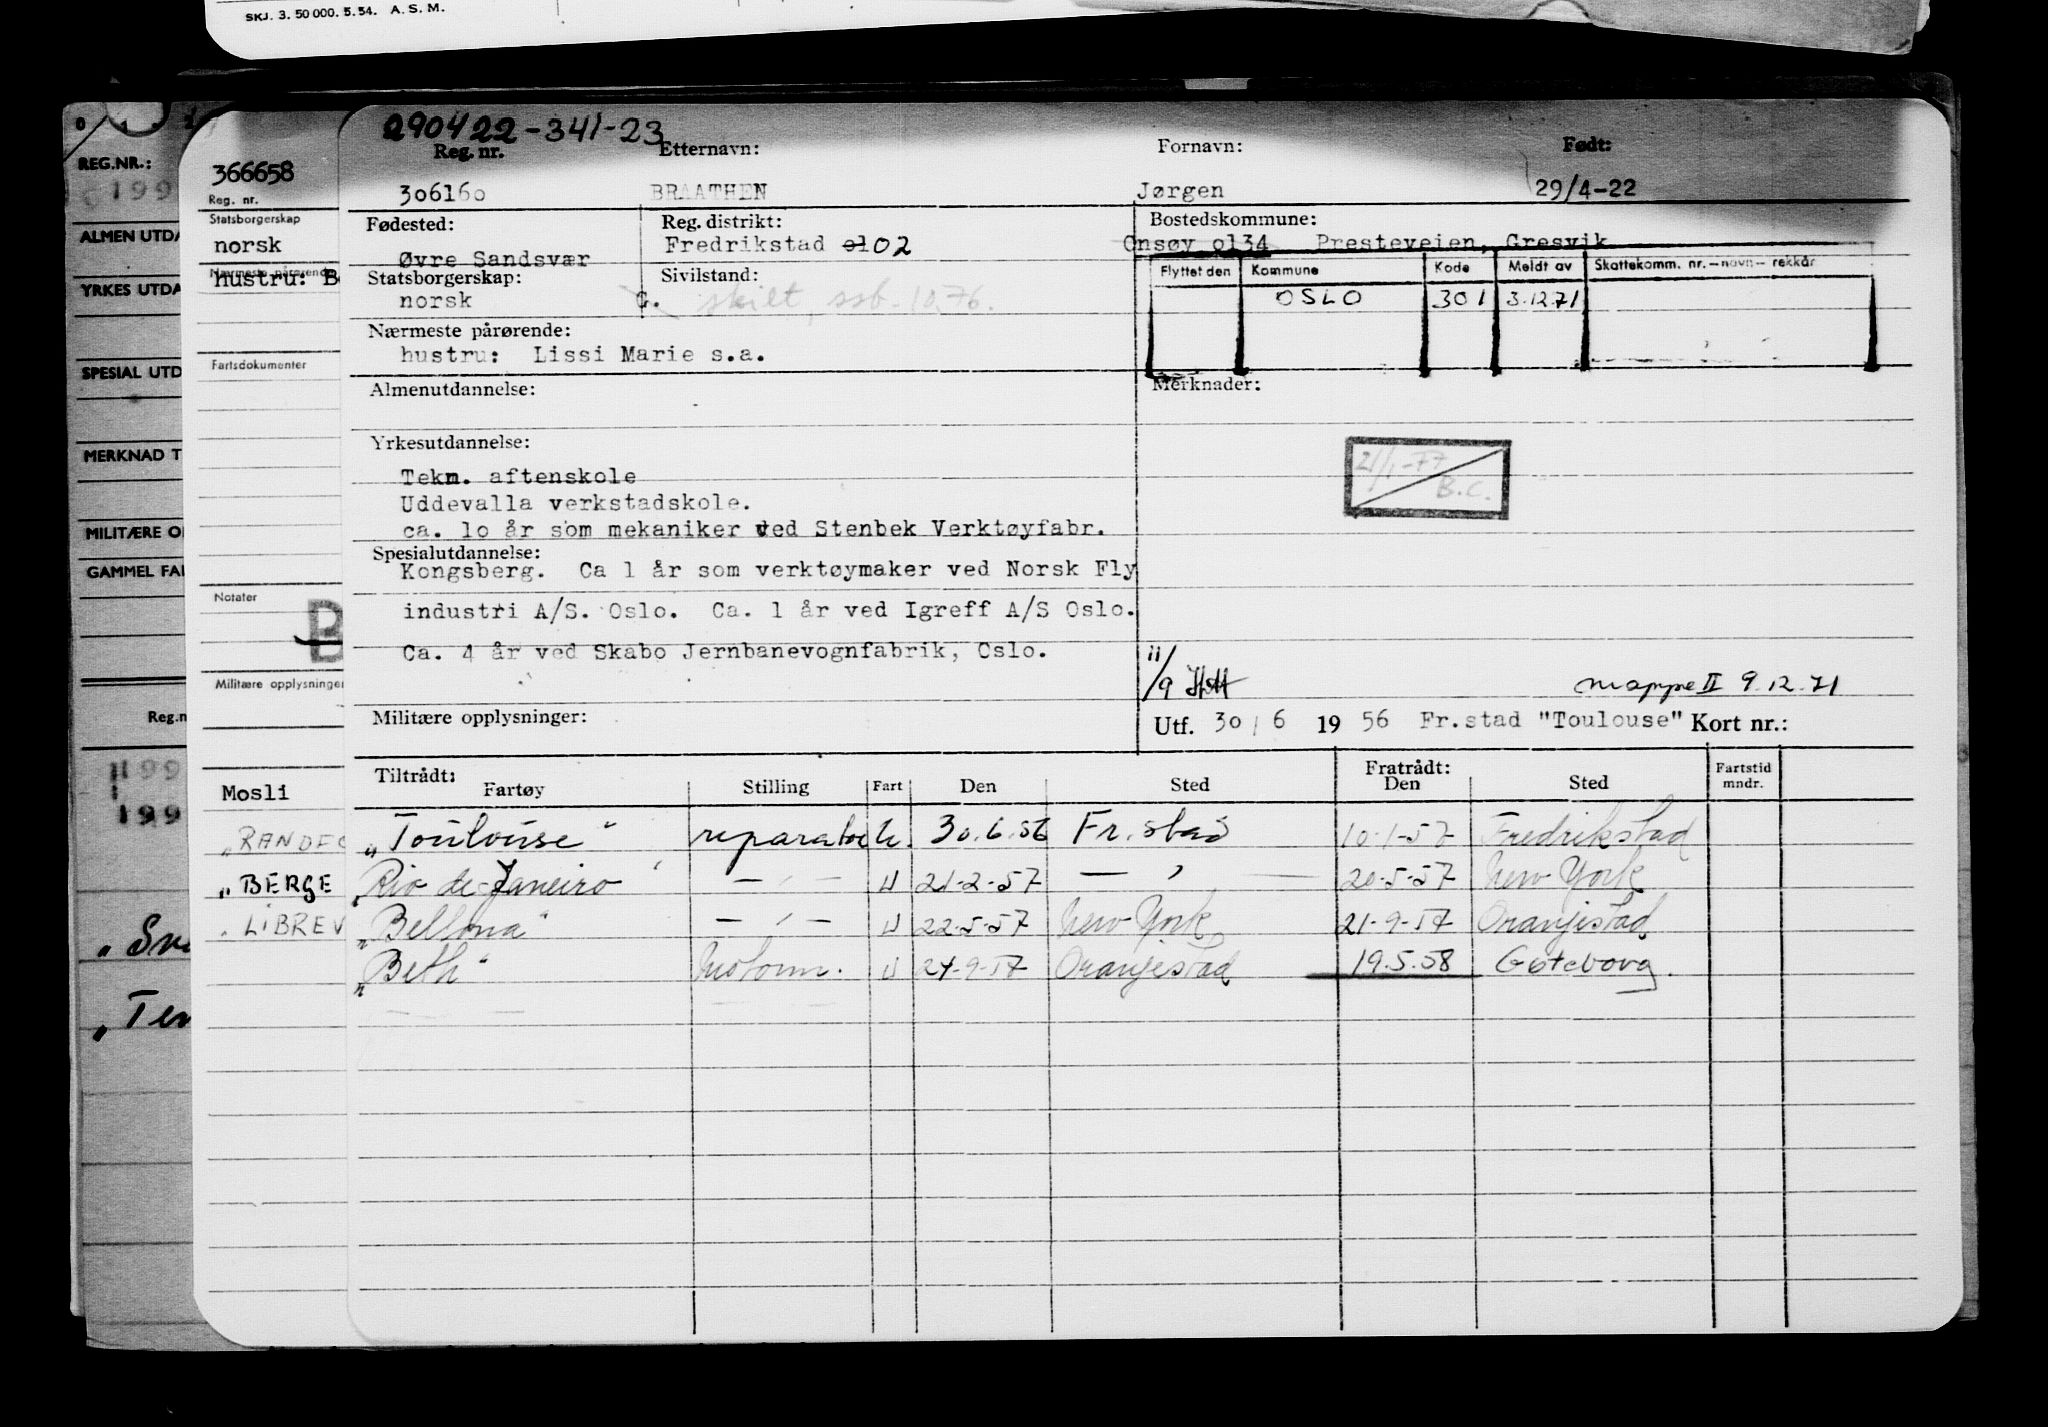 SKJ. 3. 50 000. 5.54. A. S. M.
REG.NR.:
199
ALMEN UTDA
YRKES UTDA
SPESIAL UTD
MERKNAD T
MILITÆRE O
GAMMEL FAR
Reg.n
199
199
366658
Reg. nr.
Statsborgerskap
norsk
Nærmeste pårørende
hustru: B
Fartsdokumenter
Notater
B
Militære opplysninger
Mosli
"BERGE
"LIBREV
290422-341-23
Reg. nr. Etternavn: Fornavn: Født:
306160 BRAATHEN Jørgen 29/4-22
Fødested: Reg. distrikt: Bostedskommune:
Øvre Sandsvær Fredrikstad o102 Onsøy o134 Presteveien, Gresvik
Statsborgerskap: Sivilstand: Flyttet den Kommune Kode Meldt av Skattekomm. nr. – navn – rekkår
norsk G. skilt, ssb. 10.76. OSLO 301 3.12.71
Nærmeste pårørende:
hustru: Lissi Marie s.a.
Almenutdannelse: Merknader:
Yrkesutdannelse:
Tekn. aftenskole
Uddevalla verkstadskole.
ca. lo år som mekaniker ved Stenbek Verktøyfabr.
21/1-77 B.C.
Spesialutdannelse:
Kongsberg. Ca 1 år som verktøymaker ved Norsk Fly
industri A/S. Oslo. Ca. 1 år ved Igreff A/S Oslo.
Ca. 4 år ved Skabo Jernbanevognfabrik, Oslo.
11/9 mappe II 9.12.71
Militære opplysninger: Utf. 30/6 19 56 Fr.stad "Toulouse" Kort nr.:
Tiltrådt: Fratrådt:
Fartøy Stilling Fart Den Sted Den Sted Fartstid mndr.
"Toulouse" reparatør U. 30.6.56 Fr.stad 10-1-57 Fredrikstad
"Rio de Janeiro" — " — U 21-2-57 — " — 20-5-57 New York
"Bellona" — " — U 22-5-57 New York 21-9-57 Oranjestad
"Beth" Motorm. U 24-9-57 Oranjestad 19.5.58 Gøteborg.